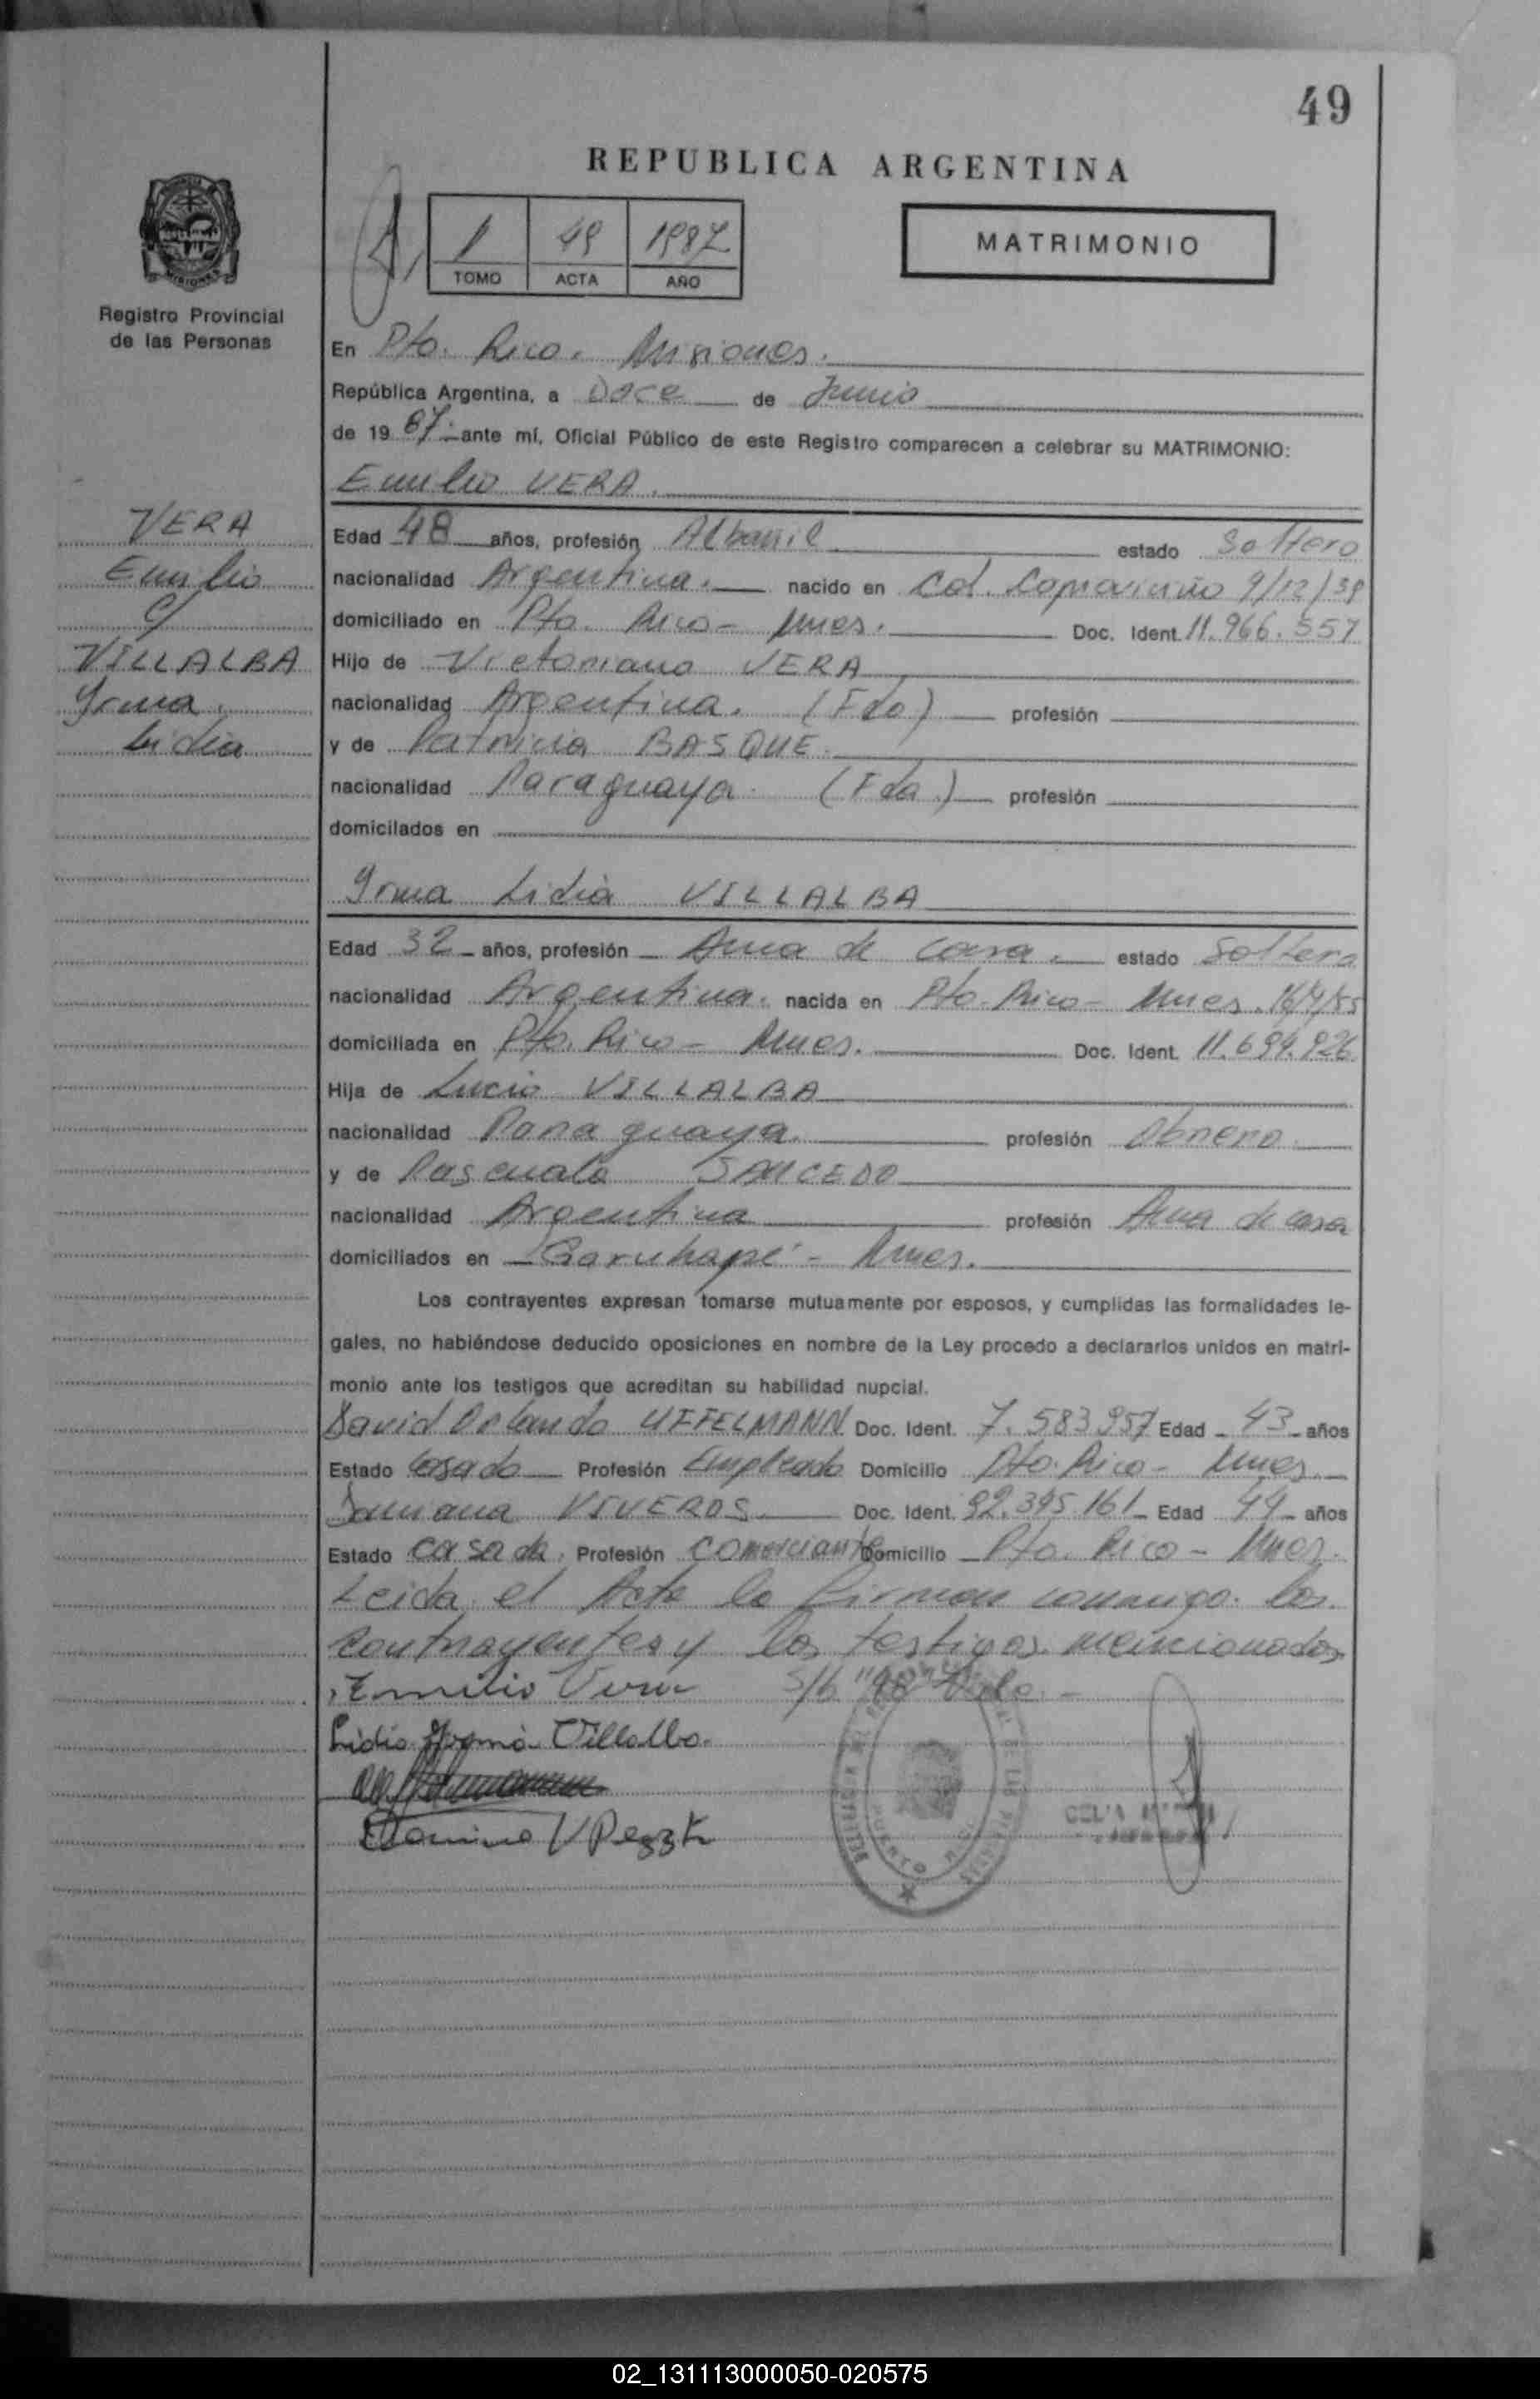 49
REPUBLICA ARGENTINA
1 49 1987
TOMO ACTA AÑO
MATRIMONIO
Registro Provincial
de las Personas
En Pto. Rico. Misiones.
República Argentina, a Doce de Junio
de 19 87 ante mí, Oficial Público de este Registro comparecen a celebrar su MATRIMONIO:
Emilio VERA.
VERA
Emilio
c/
VILLALBA
Yrma
Lidia
Edad 48 años, profesión Albañil estado Soltero
nacionalidad Argentina. nacido en Col. 9/12/39
domiciliado en Pto. Rico - Mnes. Doc. Ident. 11.966.557
Hijo de Victoriano VERA
nacionalidad Argentina. (Fdo) profesión
y de Patricia BASQUE
nacionalidad Paraguaya. (Fda.) profesión
domicilados en
Yrma Lidia VILLALBA
Edad 32 años, profesión Ama de casa. estado Soltera
nacionalidad Argentina. nacida en Pto. Rico - Mnes. 16/4/55
domiciliada en Pto. Rico - Mnes. Doc. Ident. 11.694.926
Hija de Lucio VILLALBA
nacionalidad Paraguaya. profesión Obrero
y de Pascuala SAUCEDO
nacionalidad Argentina profesión Ama de casa
domiciliados en Garuhapé - Mnes.
Los contrayentes expresan tomarse mutuamente por esposos, y cumplidas las formalidades le-
gales, no habiéndose deducido oposiciones en nombre de la Ley procedo a declararlos unidos en matri-
monio ante los testigos que acreditan su habilidad nupcial.
David Orlando UFFELMANN Doc. Ident. 7.583.957 Edad 43 años
Estado Casado Profesión Empleado Domicilio Pto. Rico - Mnes.
VIVEROS Doc. Ident. 92.395.161 Edad 44 años
Estado casada. Profesión comerciante Domicilio Pto. Rico - Mnes.
Leida el Acta la firman conmigo los
contrayentes y los testigos mencionados
Emilio Vera S/b "98" Vale. -
Lidia Yrma Villalba.
02_131113000050-020575